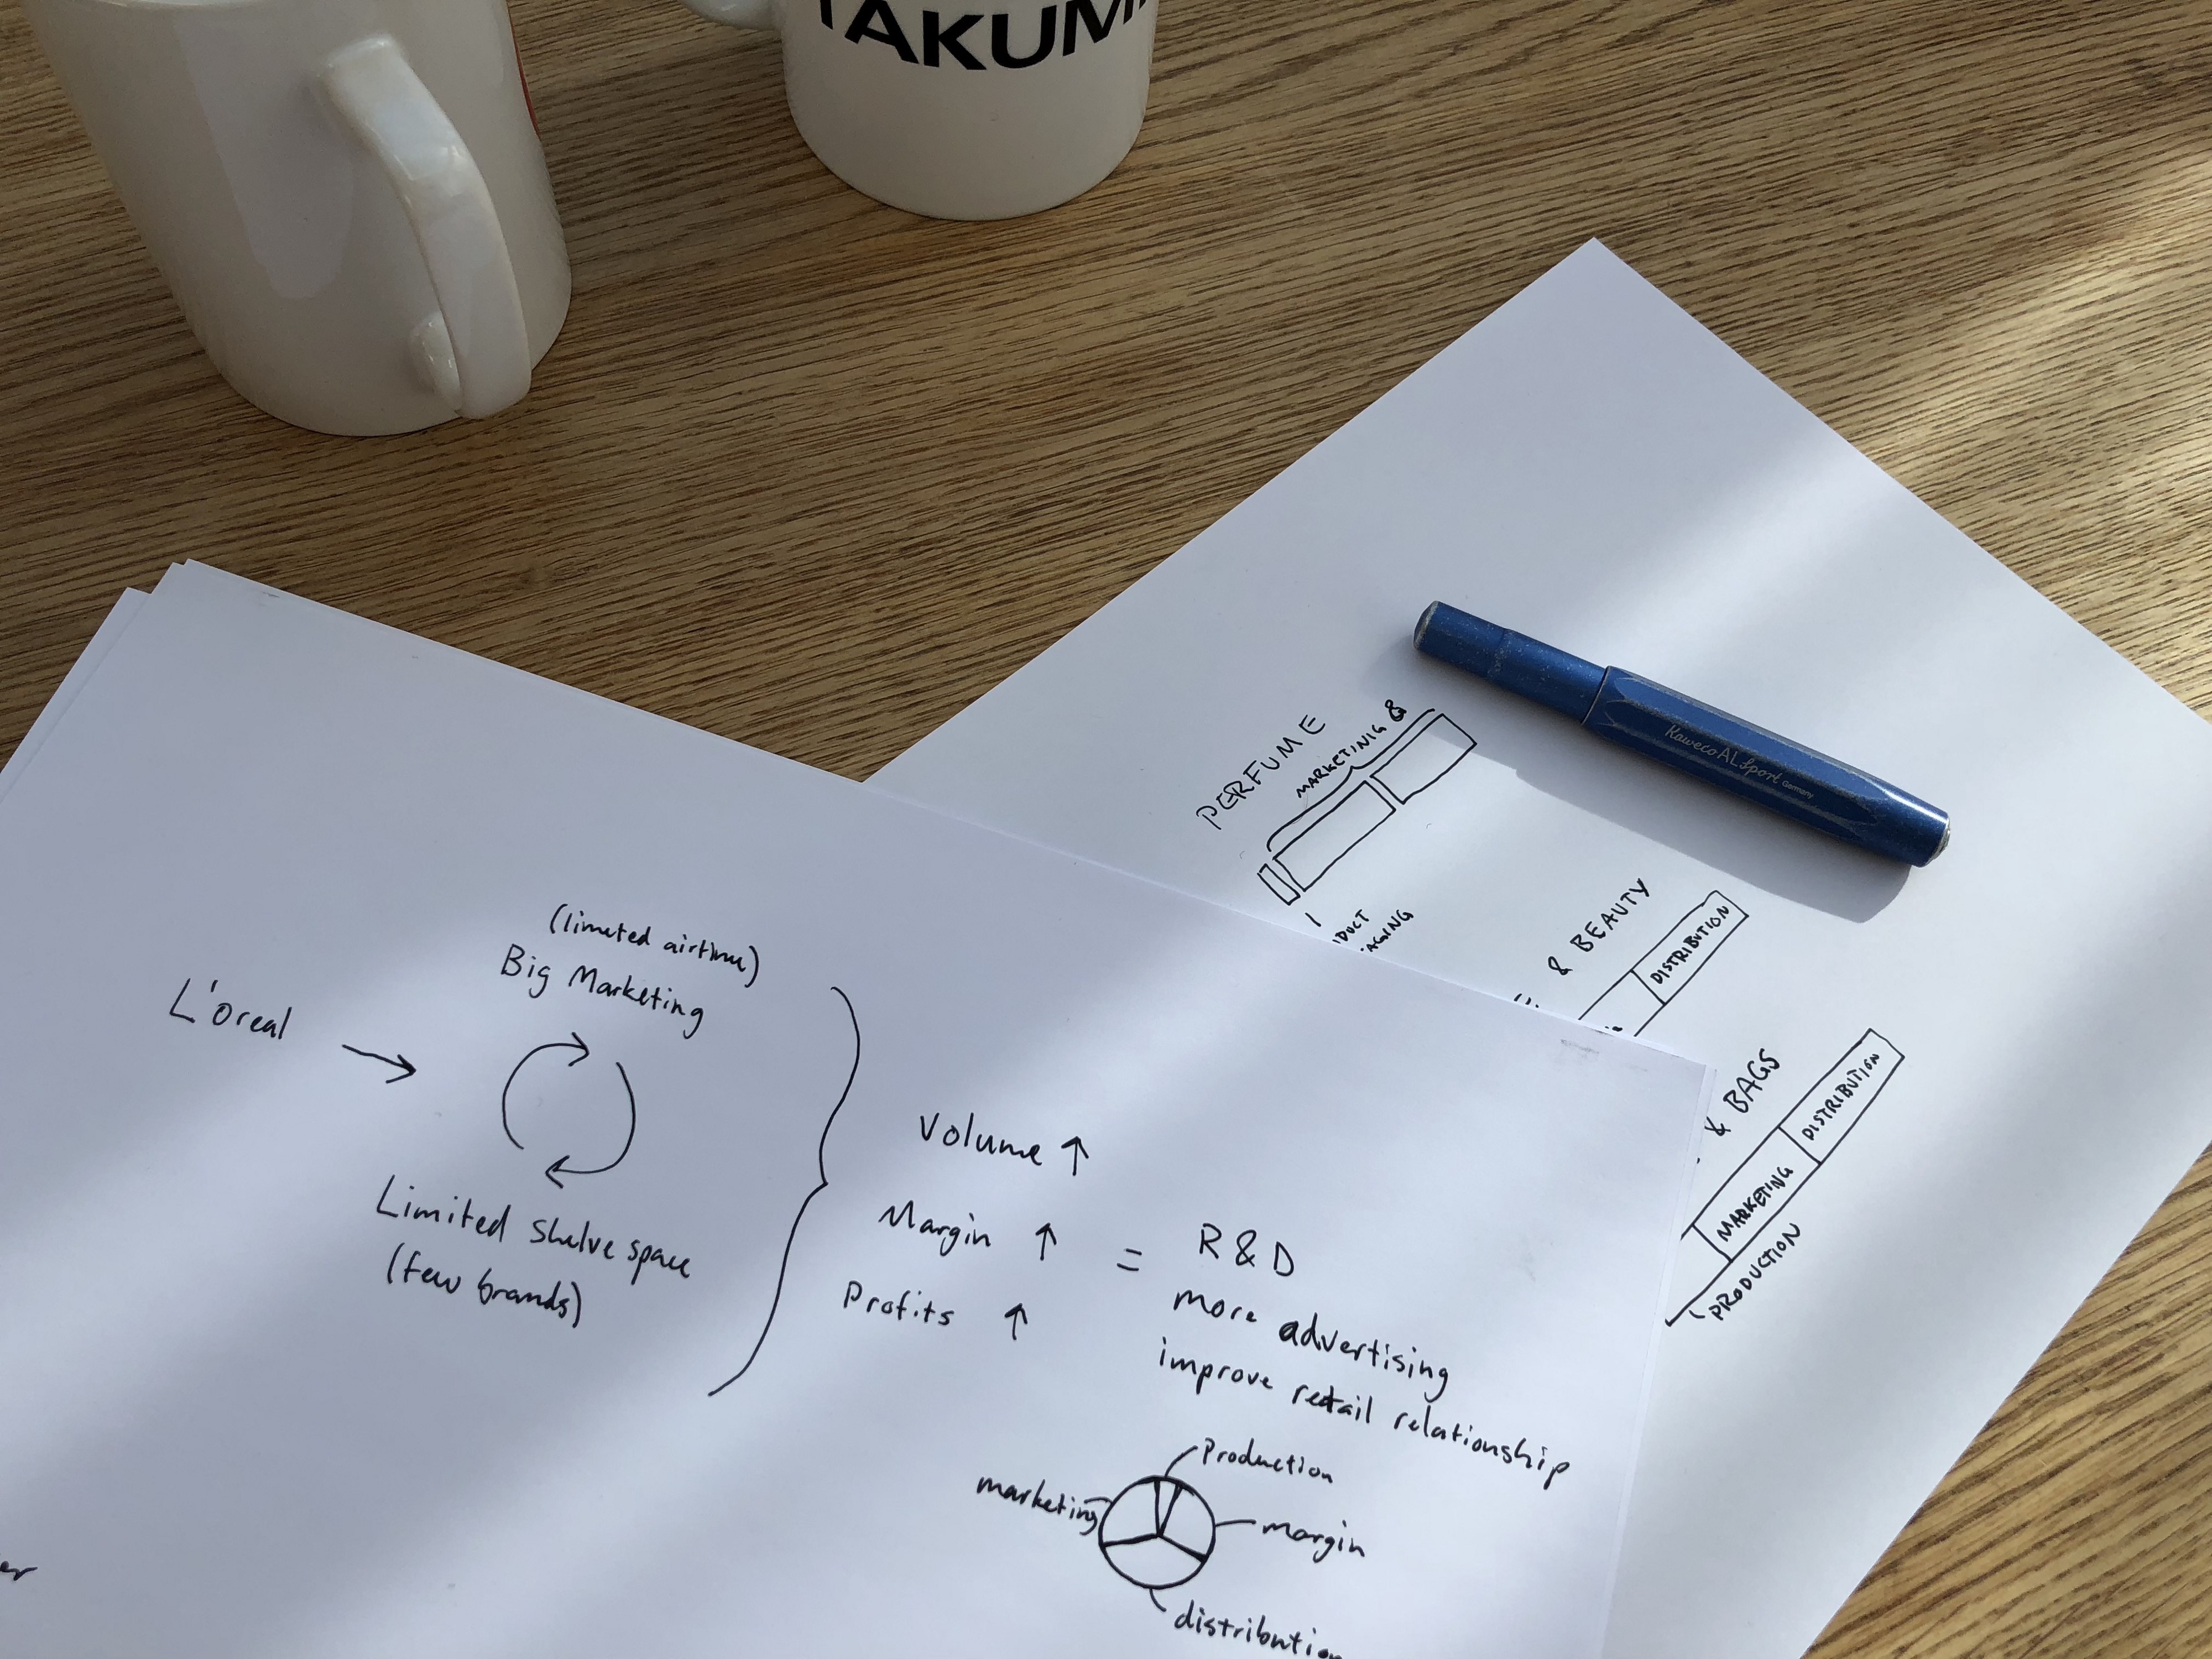 TAKUMI
KawecoAL Sport Germany
PERFUME
MARKETINIG &
& BEAUTY
DISTRIBUTION
& BAGS
DISTRIBUTION
MARKETING
PRODUCTION
L'oreal
(limited airtime)
Big Marketing
Limited shelve space
(few brands)
Volume ↑
Margin ↑
Profits ↑
=
R&D
more advertising
improve retail relationship
Production
marketing
margin
distribution